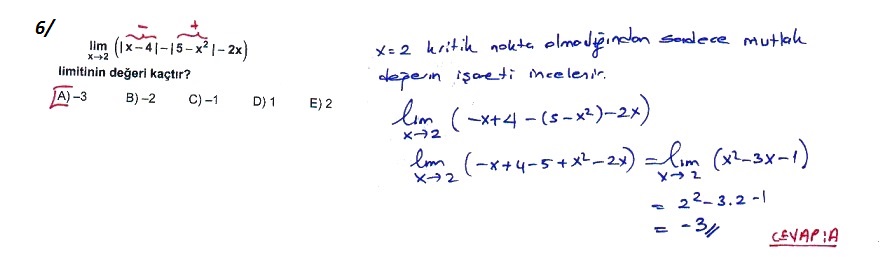 6/
- +
lim (|x-4|-|5-x²|-2x)
x→2
limitinin değeri kaçtır?
A) -3 B) -2 C) -1 D) 1 E) 2
x=2 kritik nokta olmadığından sadece mutlak
değerin işareti incelenir.
lim (-x+4-(5-x²)-2x)
x→2
lim (-x+4-5+x²-2x) = lim (x²-3x-1)
x→2 x→2
= 2²-3.2-1
= -3//
CEVAP:A